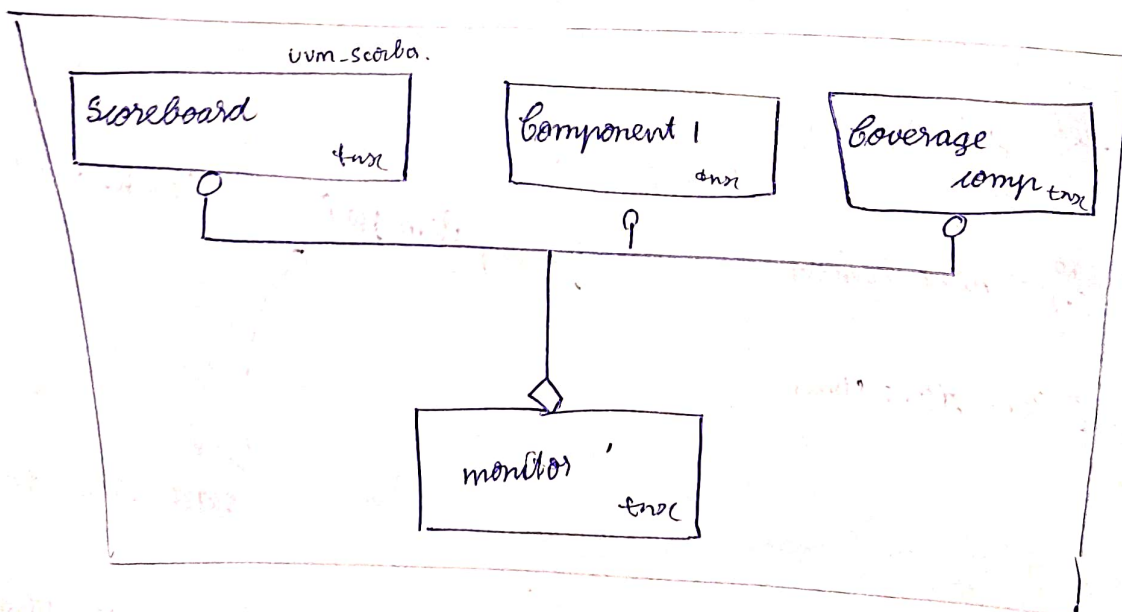 uvm_scorbo.
Scoreboard
tnx
Component 1
tnx
Coverage
comp tnx
monitor
tnx